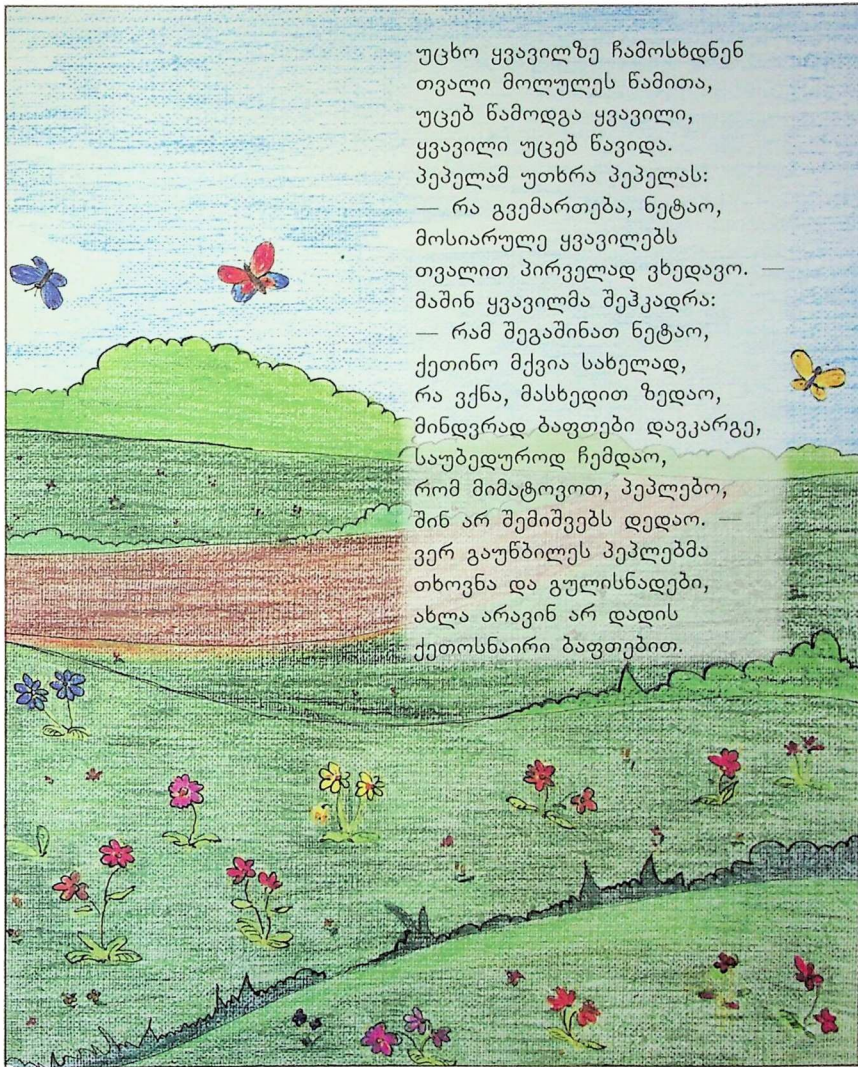 უცხო ყვავილზე ჩამოსხდნენ
თვალი მოლულეს წამითა,
უცებ წამოდგა ყვავილი,
ყვავილი უცებ წავიდა.
პეპელამ უთხრა პეპელას:
— რა გვემართება, ნეტაო,
მოსიარულე ყვავილებს
თვალით პირველად ვხედავო. —
მაშინ ყვავილმა შეჰკადრა:
— რამ შეგაშინათ ნეტაო,
ქეთინო მქვია სახელად,
რა ვქნა, მასხედით ზედაო,
მინდვრად ბაფთები დავკარგე,
საუბედუროდ ჩემდაო,
რომ მიმატოვოთ, პეპლებო,
შინ არ შემიშვებს დედაო. —
ვერ გაუწბილეს პეპლებმა
თხოვნა და გულისნადები,
ახლა არავინ არ დადის
ქეთოსნაირი ბაფთებით.